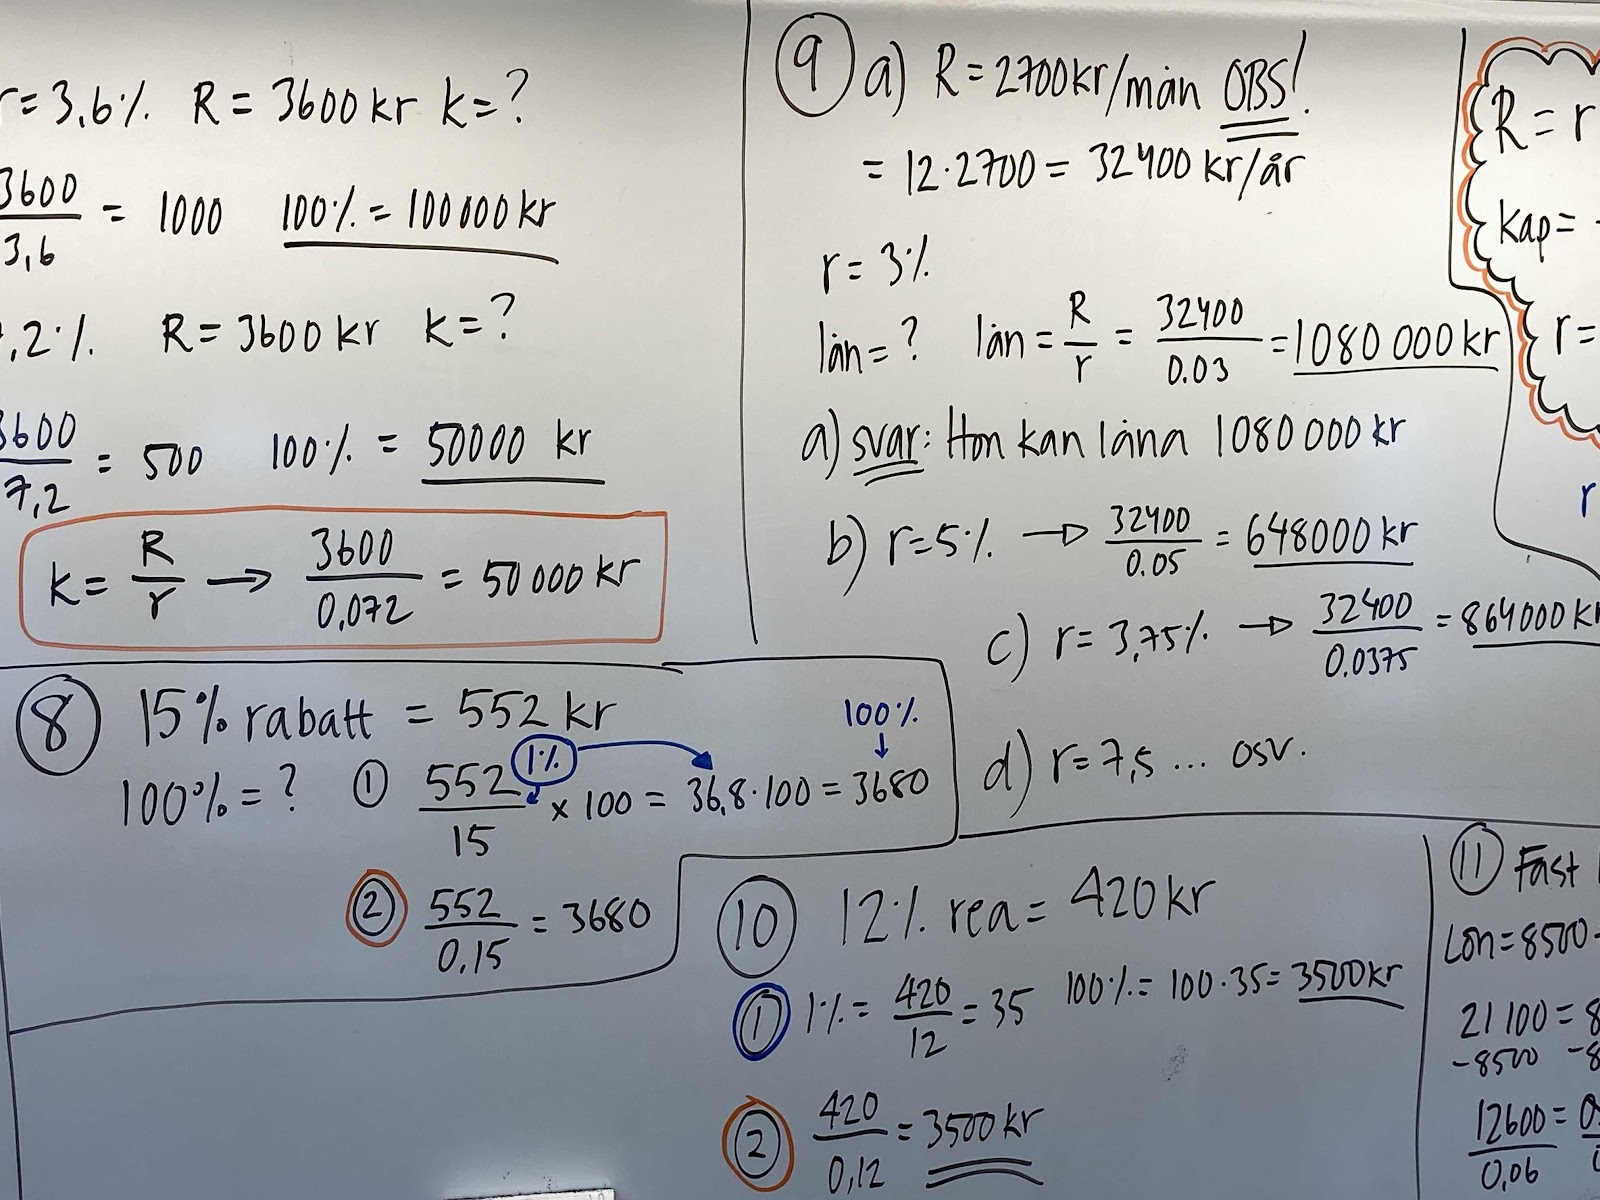 r = 3,6% R = 3600 kr k = ?
3600
3,6
= 1000 100% = 100 000 kr
,2% R = 3600 kr k = ?
3600
7,2
= 500 100% = 50000 kr
k = R/r → 3600/0,072 = 50 000 kr
8 15% rabatt = 552 kr
100% = ? 1 552/15 x 100 = 36,8 · 100 = 3680
1%
100%
2 552/0,15 = 3680
9 a) R = 2700 kr/mån OBS!
= 12 · 2700 = 32400 kr/år
r = 3%
lån = ? lån = R/r = 32400/0.03 = 1080 000 kr
a) svar: Hon kan låna 1080 000 kr
b) r = 5% → 32400/0.05 = 648000 kr
c) r = 3,75% → 32400/0.0375 = 864000 kr
d) r = 7,5 ... osv.
10 12% rea = 420 kr
1 1% = 420/12 = 35 100% = 100 · 35 = 3500 kr
2 420/0,12 = 3500 kr
R = r
kap =
r =
r
11 Fast
Lön = 8500
21 100 = 8
-8500 -8
12600/0,06 =